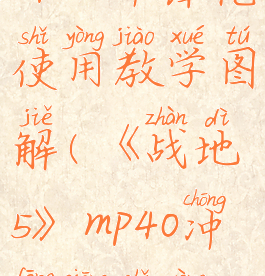 shǐ yòng jiào xué tú
使用教学图
jiě zhàn dì
解(《战地
chōng
5》mp40冲